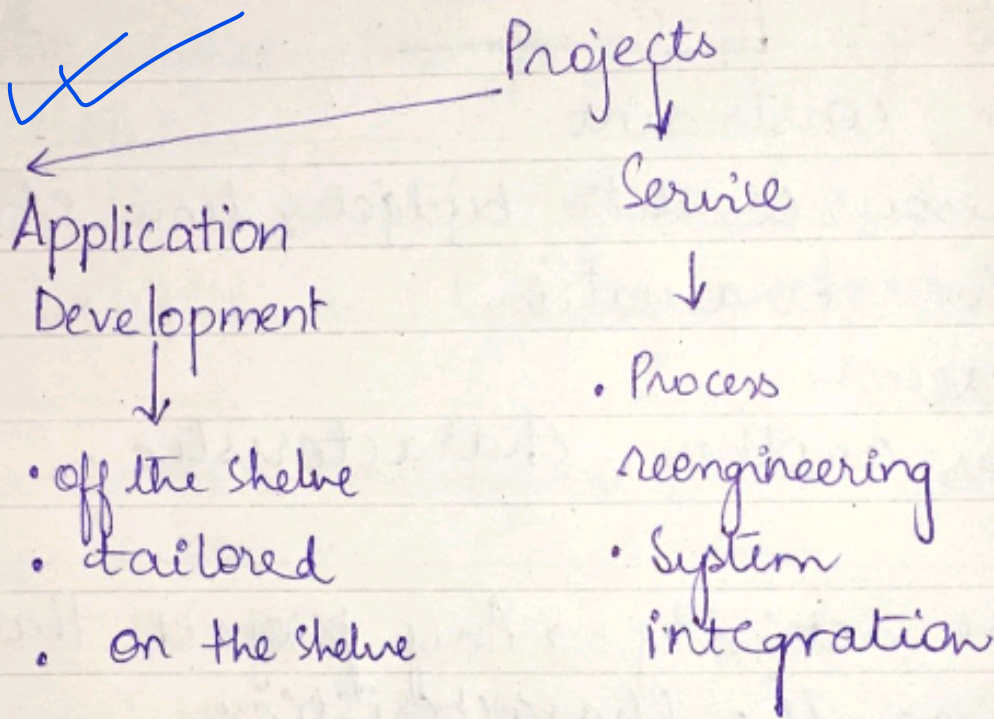 Projects
Application
Development
• off the shelve
• tailored
• on the shelve
Service
• Process
reengineering
• System
integration